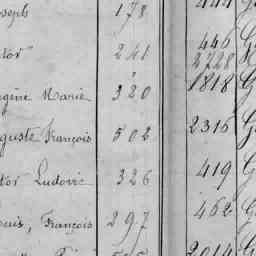 oseph 178 444 G
tor" 241 446 G
2728
gène Marie 320 1818 G
guste François 502 2316 G
tor Ludovic 326 419 G
ouis, François 297 462 G
2014 G